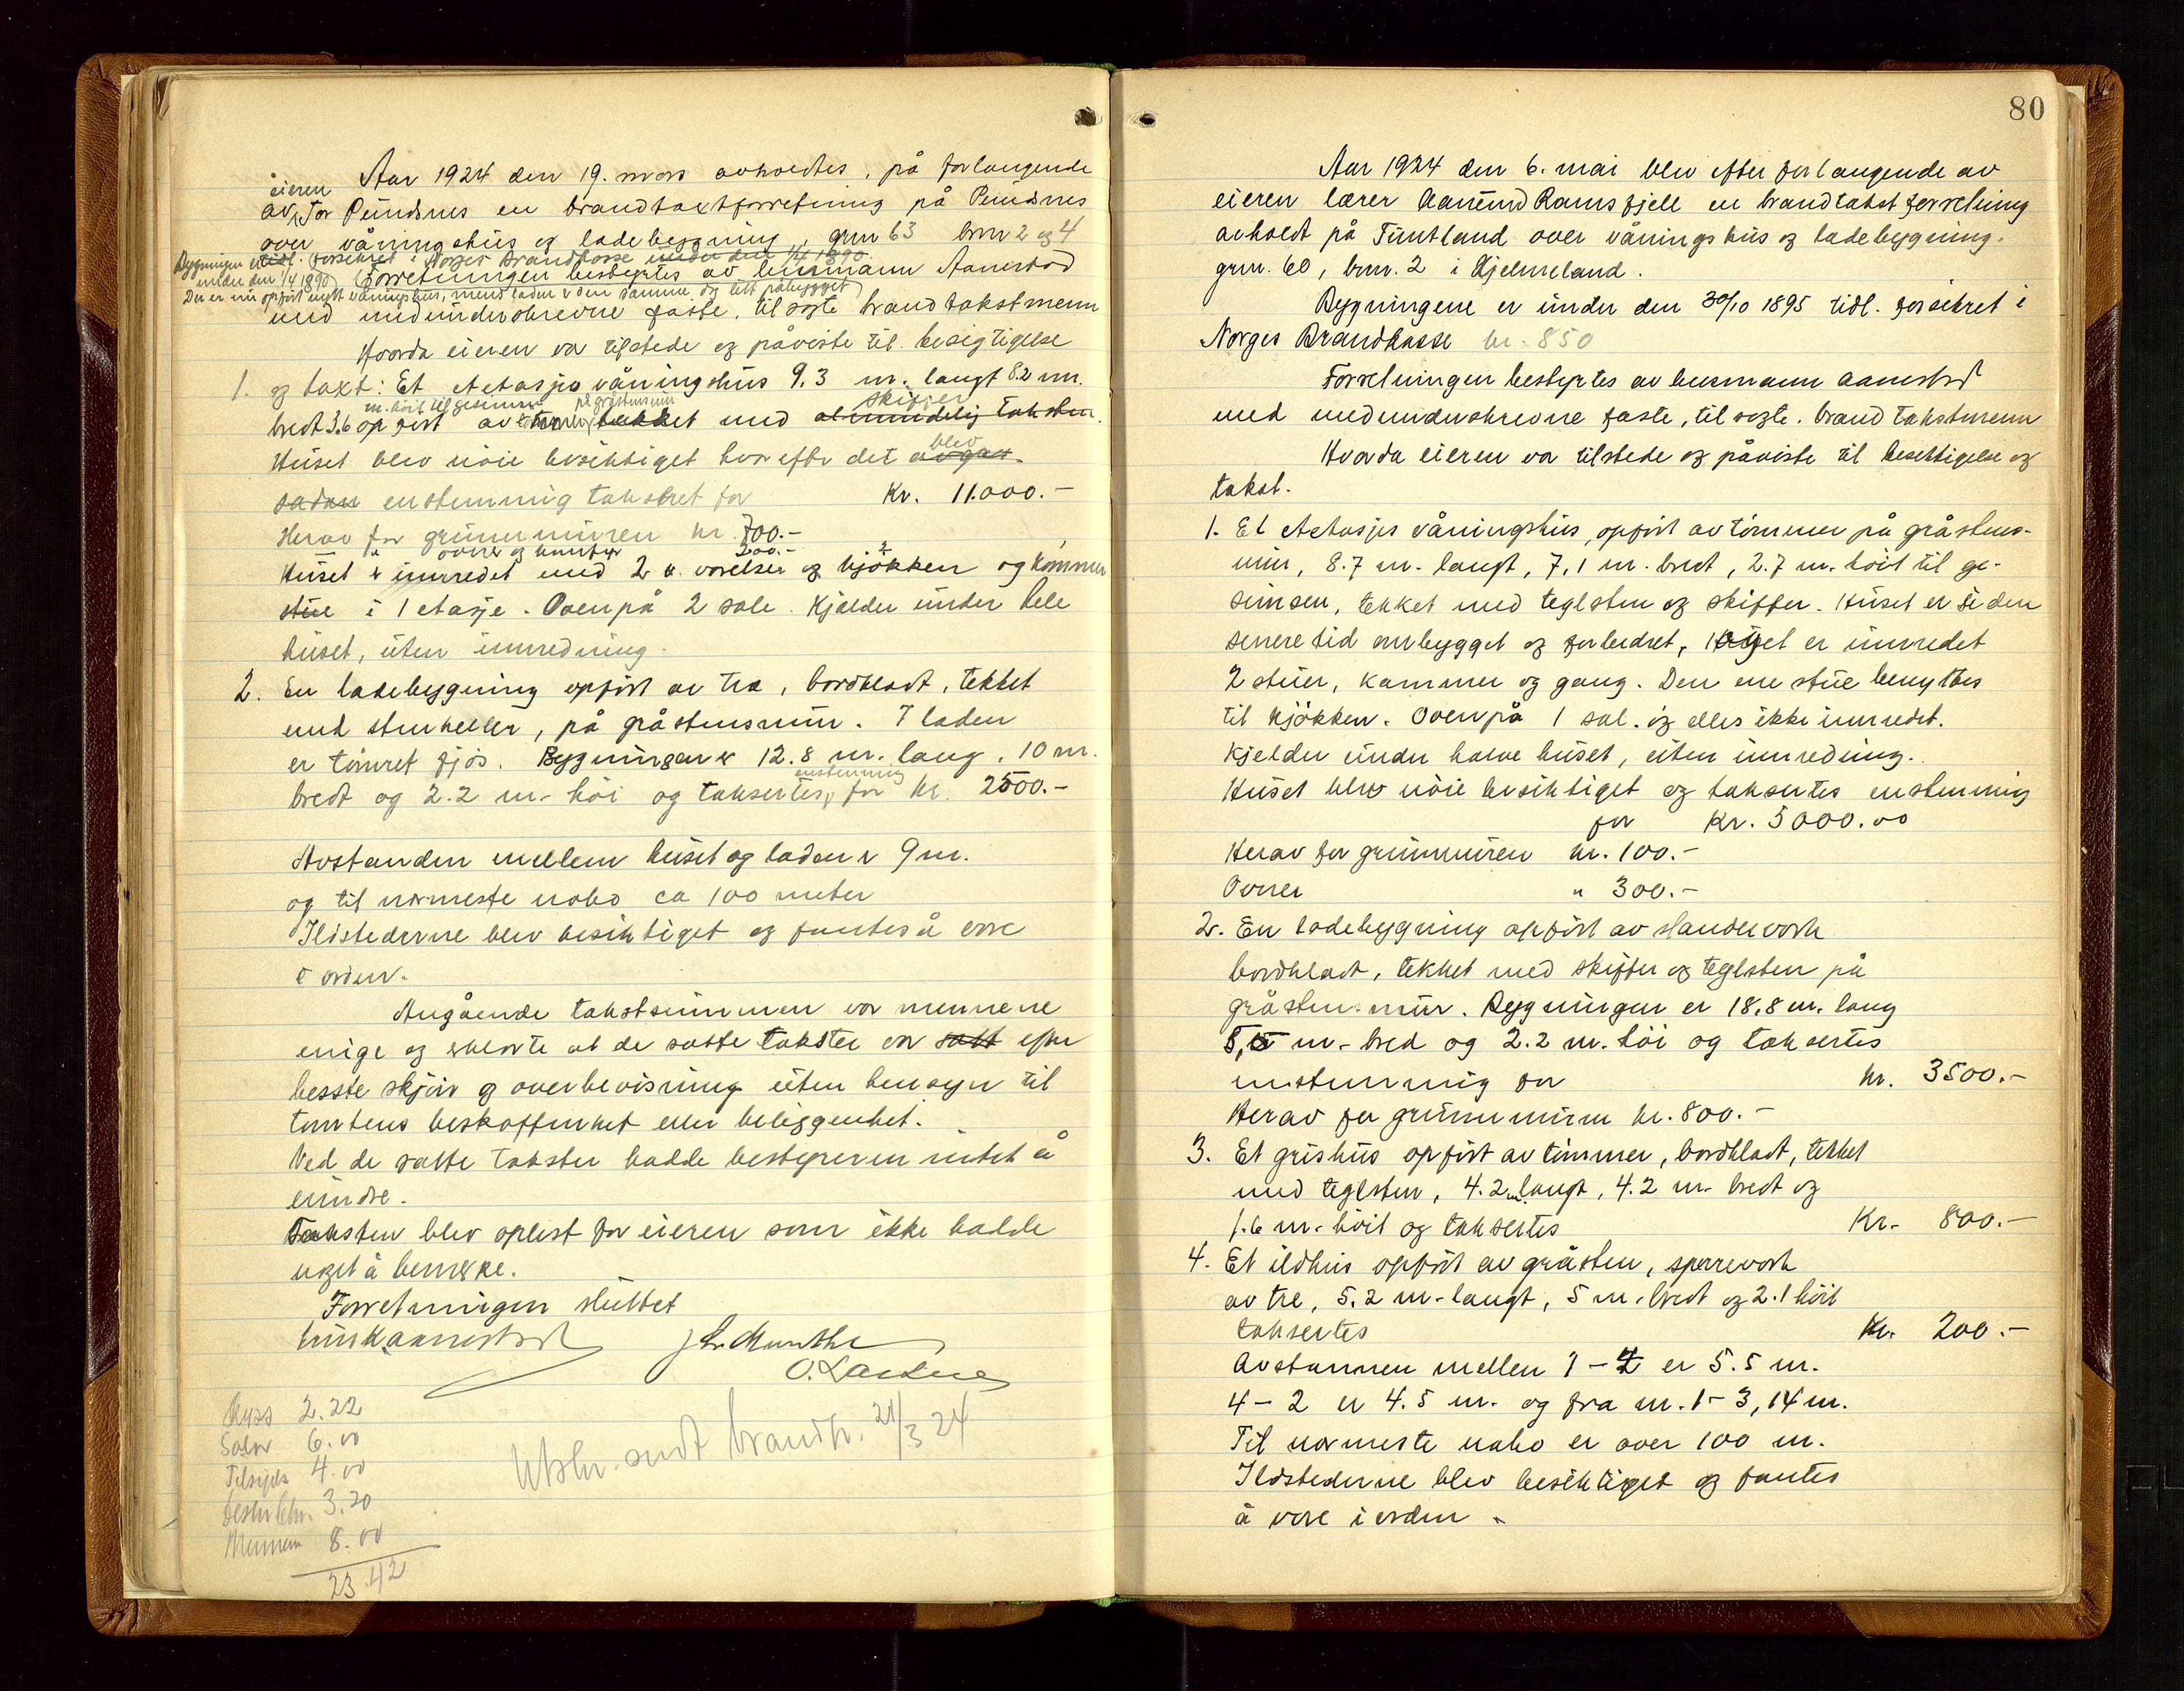 Aar 1924 den 19. mars avholdtes, på forlangende
eieren
av Tor Pundsnes en brandtaxtforretning på Pundsnes
over våningshus og ladebygning, grnr 63 brnr 2 og 4
Bygningen er tidl. forsikret i Norges Brandkasse under den 1/4 1890.
under den 1/4 1890 Forretningen bestyrtes av lensmann Aanestad
Der er nu opført nytt våningshus, mens laden er den samme og litt påbygget
med medunderskrevne faste, tilsagte brandtakstmenn
Hvorda eieren var tilstede og påviste til besigtigelse
1. og taxt: Et etetasjes våningshus 9.3 m. langt 8.2 m.
m. höit til gesimsen på gråstensmur skiffer
bredt 3.6 opført av tømmer, tækket med almindelig taksten
Huset blev nöie besiktiget hvorefter det avgav blev
sådan enstemmig takseret for Kr. 11.000.-
Herav for grunnmuren kr. 700.-
" ovner og komfyr 200.-
Huset er innredet med 2 værelser og 2 kjökken og kammer
stue i 1 etasje. Ovenpå 2 sale. Kjelder under hele
huset, uten innredning.
2. En ladebygning opført av træ, bordkledt, tekket
med stenheller, på gråstensmur. I laden
er tömret fjøs. Bygningen er 12.8 m. lang, 10 m.
bredt og 2.2 m. höi og taksertes enstemmig for kr. 2500.-
Avstanden mellem huset og laden er 9 m.
og til nærmeste nabo ca 100 meter
Ildstederne blev besiktiget og funtes å være
i orden.
Angående takstsummen var mennene
enige og erklærte at de satte takster er satt efter
beste skjön og overbevisning uten hensyn til
tomtens beskaffenhet eller beliggenhet.
Ved de satte takster hadde bestyreren intet å
erindre.
Taksten blev oplest for eieren som ikke hadde
noget å bemerke.
Forretningen sluttet
Aanestad J. Chr. Munthe
Skyss 2.22
Salær 6.00
Tilsigels 4.00
3.20
Mennene 8.00
23.42
Utskr. sendt brandk. 21/3 24
80
Aar 1924 den 6. mai blev efter forlangende av
eieren lærer Aanund Ramsfjell en brandtakst forretning
avholdt på Tuntland over våningshus og ladebygning.
grnr. 60, brnr. 2 i Hjelmeland.
Bygningene er under den 30/10 1895 tidl. forsikret i
Norges Brandkasse kr. 850
Forretningen bestyrtes av lensmann Aanestad
med medunderskrevne faste, tilsagte brandtakstmenn
Hvorda eieren var tilstede og påviste til besiktigelse og
takst.
1. Et etetasjes våningshus, opført av tömmer på gråstens-
mur, 8.7 m. langt, 7,1 m. bredt, 2.7 m. höit til ge-
simsen, tekket med teglsten og skiffer. Huset er i den
senere tid ombygget og forbedret, Huset er innredet
2 stuer, kammer og gang. Den ene stue benyttes
til kjökken. Ovenpå 1 sal. og elles ikke innredet.
Kjelder under halve huset, uten innredning.
Huset blev nöie besiktiget og taksertes enstemmig
for Kr. 5000.00
Herav for grunnmuren kr. 100.-
Ovner " 300.-
2. En ladebygning opført av standerverk
bordkledt, tekket med skiffer og teglsten på
gråstensmur. Bygningen er 18.8 m. lang
m. bred og 2.2 m. höi og taksertes
enstemmig for kr. 3500.-
Herav for grunnmuren kr. 800.-
3. Et grishus opført av tömmer, bordkledt, tekket
med teglsten, 4.2 m. langt, 4.2 m. bredt og
1.6 m. höit og taksertes Kr. 800.-
4. Et ildhus opført av gråsten, sperreverk
av tre, 5.2 m. langt, 5 m. bredt og 2.1 höit
taksertes Kr. 200.-
Avstannen mellen 1-4 er 5.5 m.
4-2 er 4.5 m. og fra nr. 1-3, 14 m.
Til nærmeste nabo er over 100 m.
Ildstederne blev besiktiget og funtes
å være i orden.